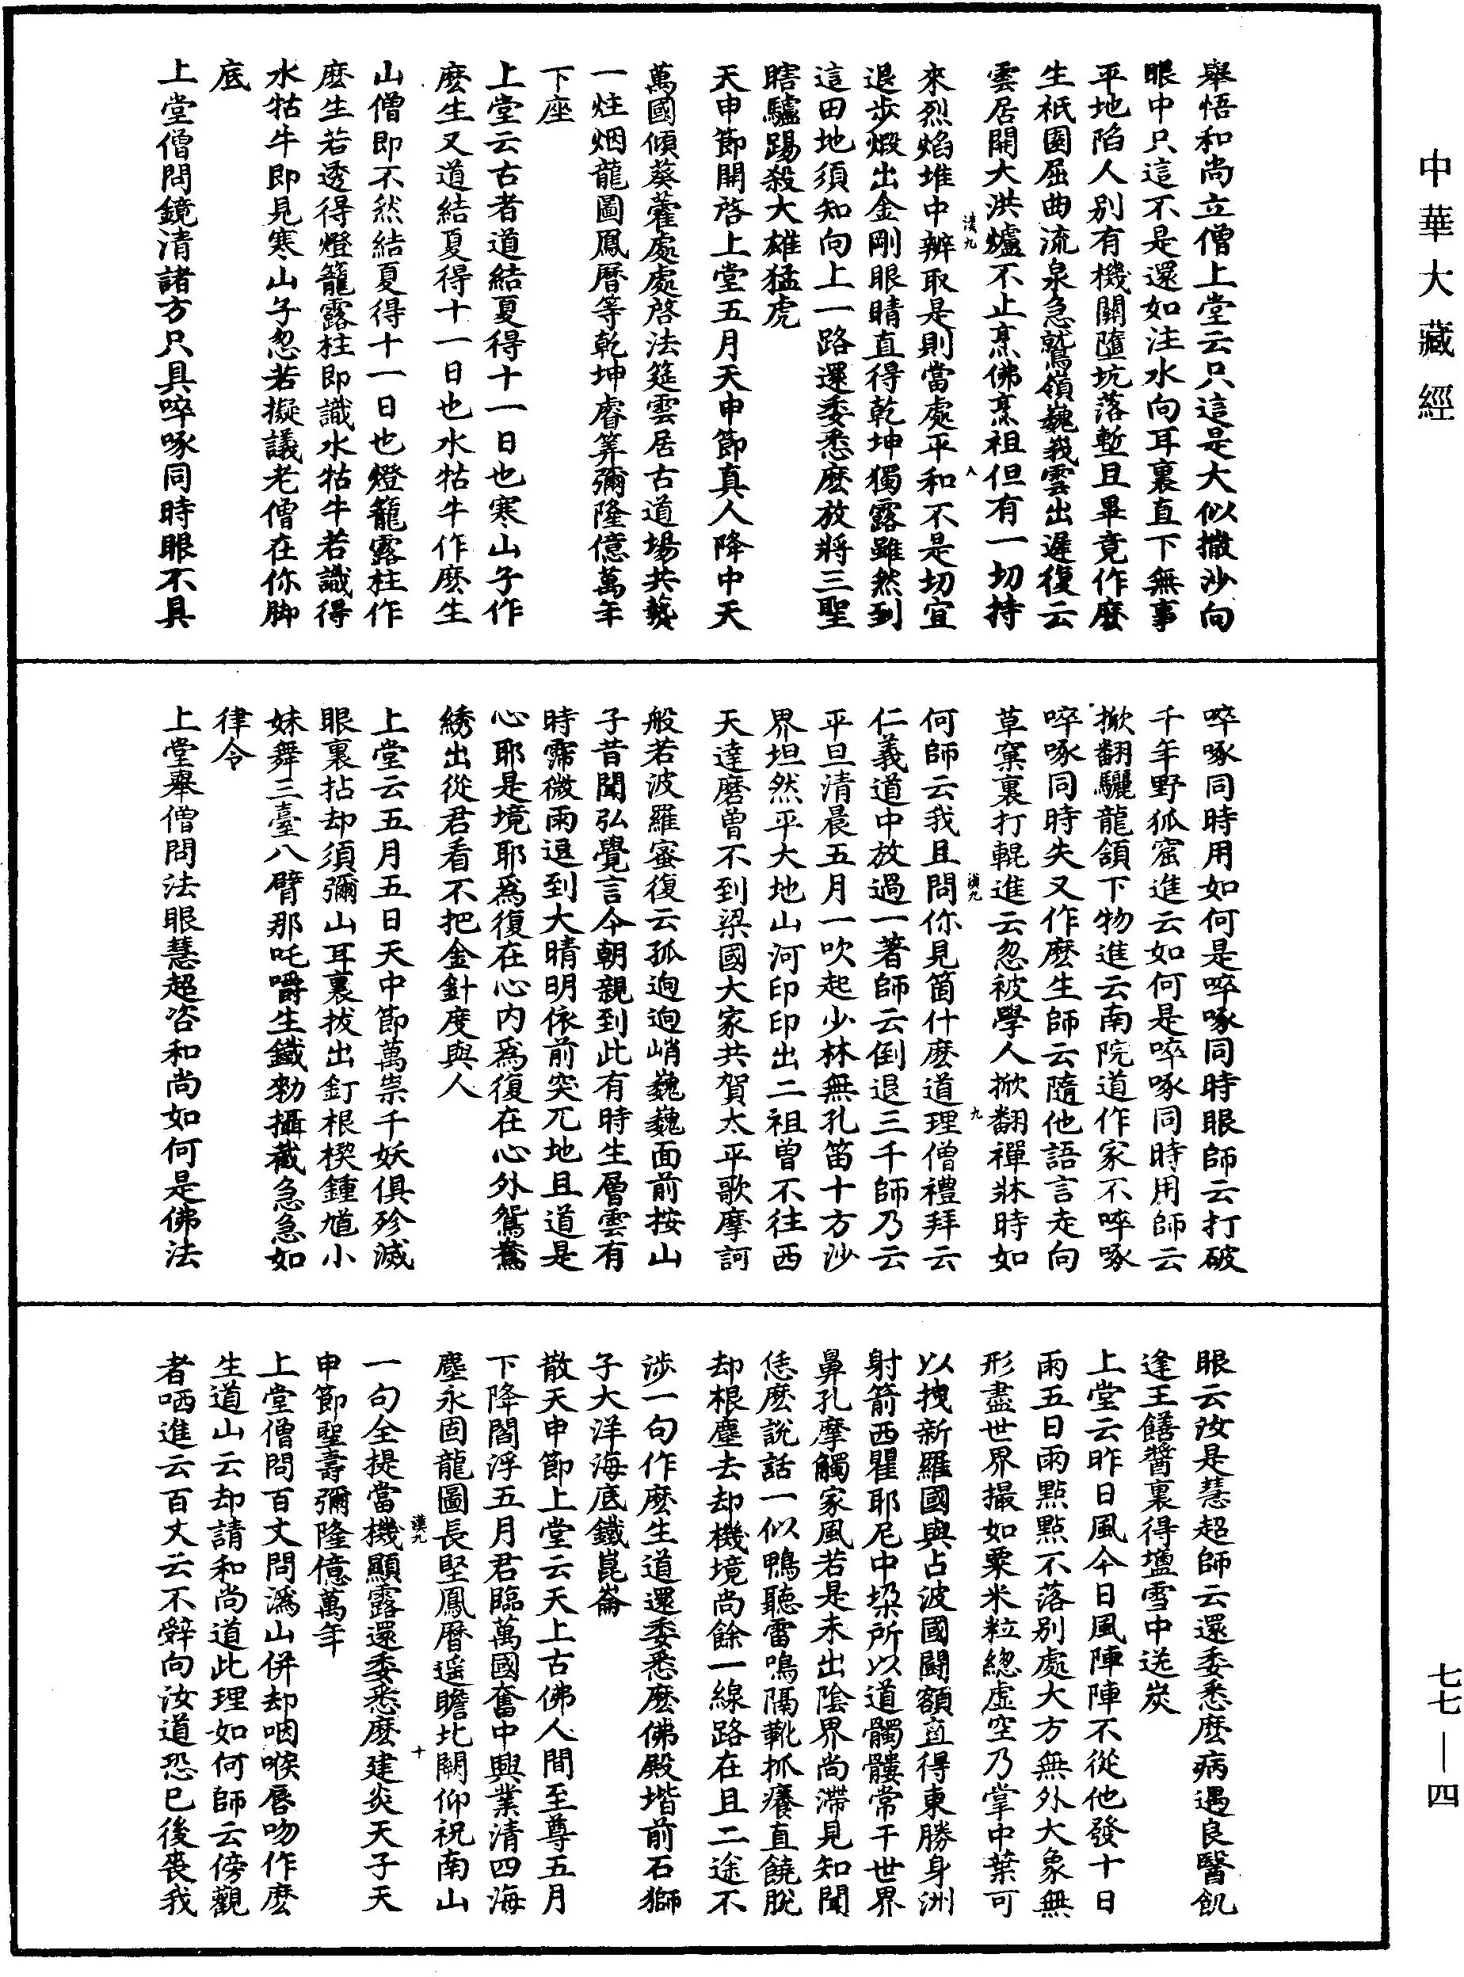 中華大藏經
舉悟和尚立僧上堂云只這是大似撒沙向
眼中只這不是還如注水向耳裏直下無事
平地陷人別有機關墮坑落塹且畢竟作麼
生祇園屈曲流泉急鷲嶺巍峩雲出遲復云
雲居開大洪爐不止烹佛烹祖但有一切持
來烈焰堆中辨取是則當處平和不是切宜
退步煅出金剛眼睛直得乾坤獨露雖然到
這田地須知向上一路還委悉麼放將三聖
瞎驢踢殺大雄猛虎
天申節開啓上堂五月天申節真人降中天
萬國傾葵藿處處啓法筵雲居古道場共爇
一炷烟龍圖鳳曆等乾坤睿筭彌隆億萬年
下座
上堂云古者道結夏得十一日也寒山子作
麼生又道結夏得十一日也水牯牛作麼生
山僧即不然結夏得十一日也燈籠露柱作
麼生若透得燈籠露柱即識水牯牛若識得
水牯牛即見寒山子忽若擬議老僧在你脚
底
上堂僧問鏡清諸方只具啐啄同時眼不具
漢九
八
啐啄同時用如何是啐啄同時眼師云打破
千年野狐窟進云如何是啐啄同時用師云
掀翻驪龍頷下物進云南院道作家不啐啄
啐啄同時失又作麼生師云隨他語言走向
草窠裏打輥進云忽被學人掀翻禪牀時如
何師云我且問你見箇什麼道理僧禮拜云
仁義道中放過一著師云倒退三千師乃云
平旦清晨五月一吹起少林無孔笛十方沙
界坦然平大地山河印印出二祖曾不往西
天達磨曾不到梁國大家共賀太平歌摩訶
般若波羅蜜復云孤迥迥峭巍巍面前按山
子昔聞弘覺言今朝親到此有時生層雲有
時霈微雨退到大晴明依前突兀地且道是
心耶是境耶為復在心內為復在心外鴛鴦
綉出從君看不把金針度與人
上堂云五月五日天中節萬祟千妖俱殄滅
眼裏拈却須彌山耳裏拔出釘根楔鍾馗小
妹舞三臺八臂那吒嚼生鐵勑攝截急急如
律令
上堂舉僧問法眼慧超咨和尚如何是佛法
漢九
九
眼云汝是慧超師云還委悉麼病遇良醫飢
逢王饍醬裏得鹽雪中送炭
上堂云昨日風今日風陣陣不從他發十日
雨五日雨點點不落別處大方無外大象無
形盡世界撮如粟米粒緫虛空乃掌中葉可
以拽新羅國與占波國鬪額直得東勝身洲
射箭西瞿耶尼中垛所以道髑髏常干世界
鼻孔摩觸家風若是未出陰界尚滯見知聞
恁麼說話一似鴨聽雷鳴隔靴抓癢直饒脫
却根塵去却機境尚餘一線路在且二途不
涉一句作麼生道還委悉麼佛殿堦前石獅
子大洋海底鐵崑崙
散天申節上堂云天上古佛人間至尊五月
下降閻浮五月君臨萬國奮中興業清四海
塵永固龍圖長堅鳳曆遥瞻北闕仰祝南山
一句全提當機顯露還委悉麼建炎天子天
申節聖壽彌隆億萬年
上堂僧問百丈問潙山併却咽喉唇吻作麼
生道山云却請和尚道此理如何師云傍觀
者哂進云百丈云不辤向汝道恐已後喪我
漢九
十
七七—四